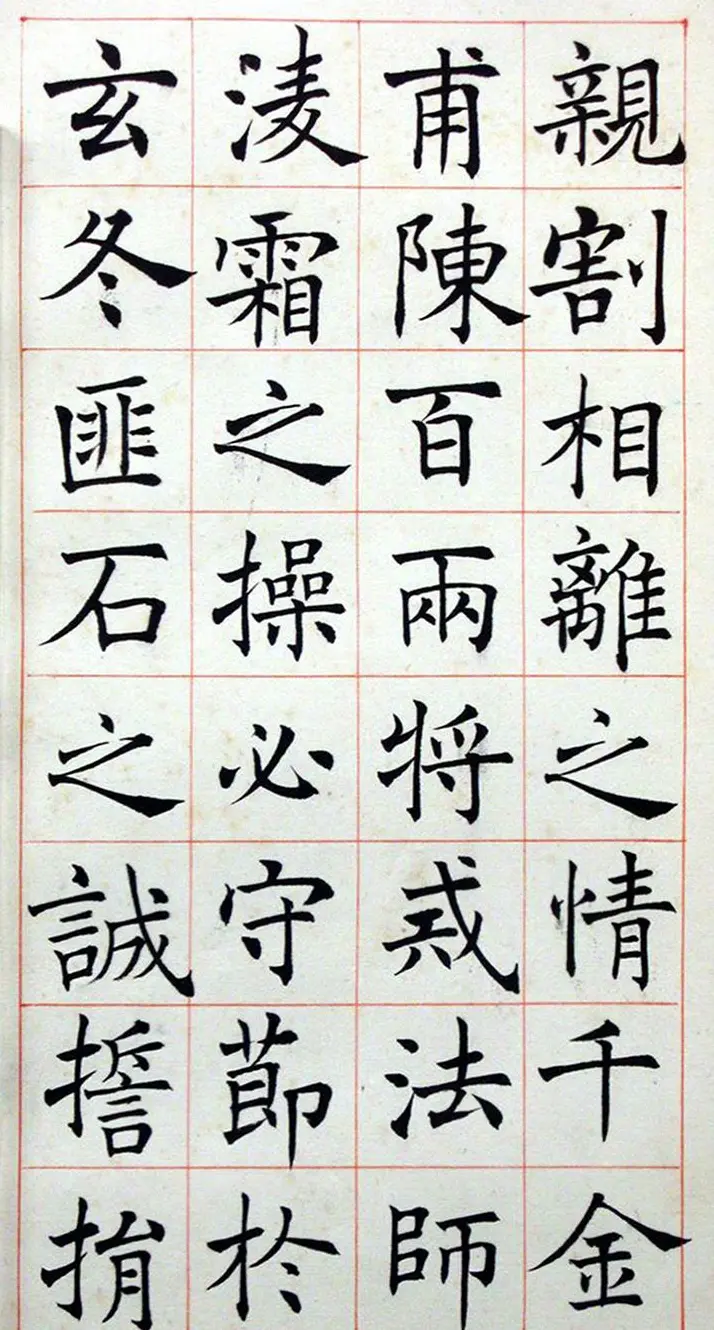 親割相離之情千金
甫陳百兩將戒法師
淩霜之操必守節於
玄冬匪石之誠誓捐